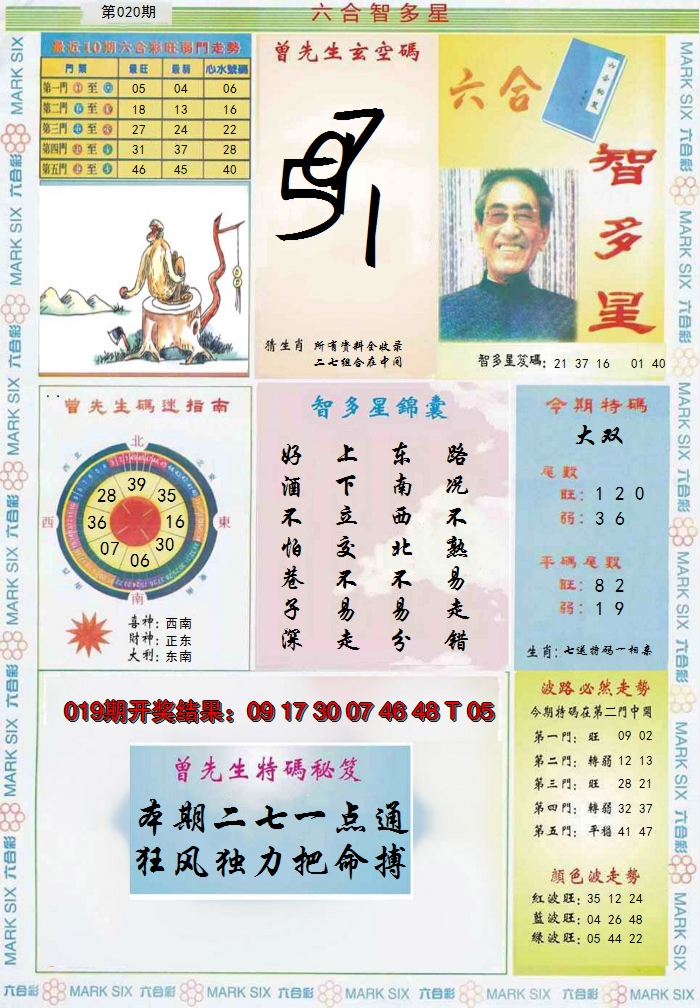 第020期
六合智多星
最近10期六合彩旺弱門走勢
門類 最旺 最弱 心水號碼
第一門 至 05 04 06
第二門 至 18 13 16
第三門 至 27 24 22
第四門 至 31 37 28
第五門 至 46 45 40
曾先生玄空碼
猜生肖 所有資料全收录
二七组合在中间
六合
智多星
智多星笈碼: 21 37 16 01 40
曾先生碼迷指南
北
西
東
南
39
28 35
36 16
07 30
06
喜神: 西南
財神: 正东
大利: 东南
智多星錦囊
好酒不怕巷子深
上下立交不易走
东南西北不易分
路况不熟易走错
今期特碼
大双
尾數
旺: 1 2 0
弱: 3 6
平碼尾數
旺: 8 2
弱: 1 9
生肖: 七送特码一相集
019期开奖结果: 09 17 30 07 46 48 T 05
曾先生特碼秘笈
本期二七一点通
狂风独力把命搏
波路必然走勢
今期特碼在第二門中開
第一門: 旺 09 02
第二門: 轉弱 12 13
第三門: 旺 28 21
第四門: 轉弱 32 37
第五門: 平穩 41 47
顏色波走勢
紅波旺: 35 12 24
藍波旺: 04 26 48
綠波旺: 05 44 22
MARK SIX 六合彩